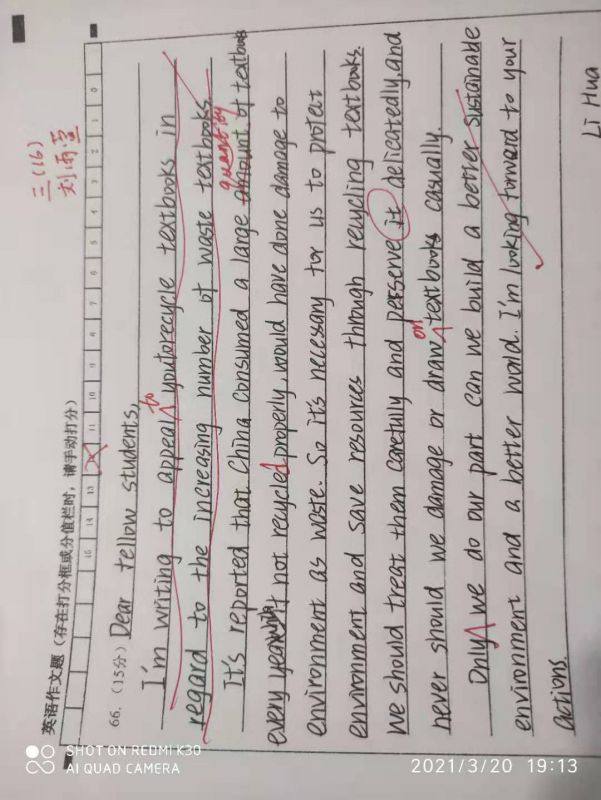 三(16)
刘雨萱
英语作文题(存在打分框或分值栏时,请手动打分)
15 14 13 12 11 10 9 8 7 6 5 4 3 2 1 0
66. (15分) Dear fellow students,
I'm writing to appeal to you to recycle textbooks in
regard to the increasing number of waste textbooks.
quantity
It's reported that China consumed a large amount of textbooks
every year not recycled properly, would have done damage to
environment as waste. So it's necessary for us to protect
environment and save resources through recycling textbooks.
We should treat them carefully and perserve it delicatedly, and
on
never should we damage or draw textbooks casually.
Only we do our part can we build a better sustainable
environment and a better world. I'm looking forward to your
actions.
Li Hua
SHOT ON REDMI K30
AI QUAD CAMERA
2021/3/20 19:13